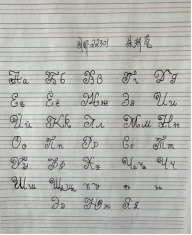 22301
Аа Бб Вв Гг Дд
Ее Ёё Жж Зз Ии
Йй Кк Лл Мм Нн
Оо Пп Рр Сс Тт
Уу Фф Хх Цц Чч
Шш Щщ ъ ы ь
Ээ Юю Яя